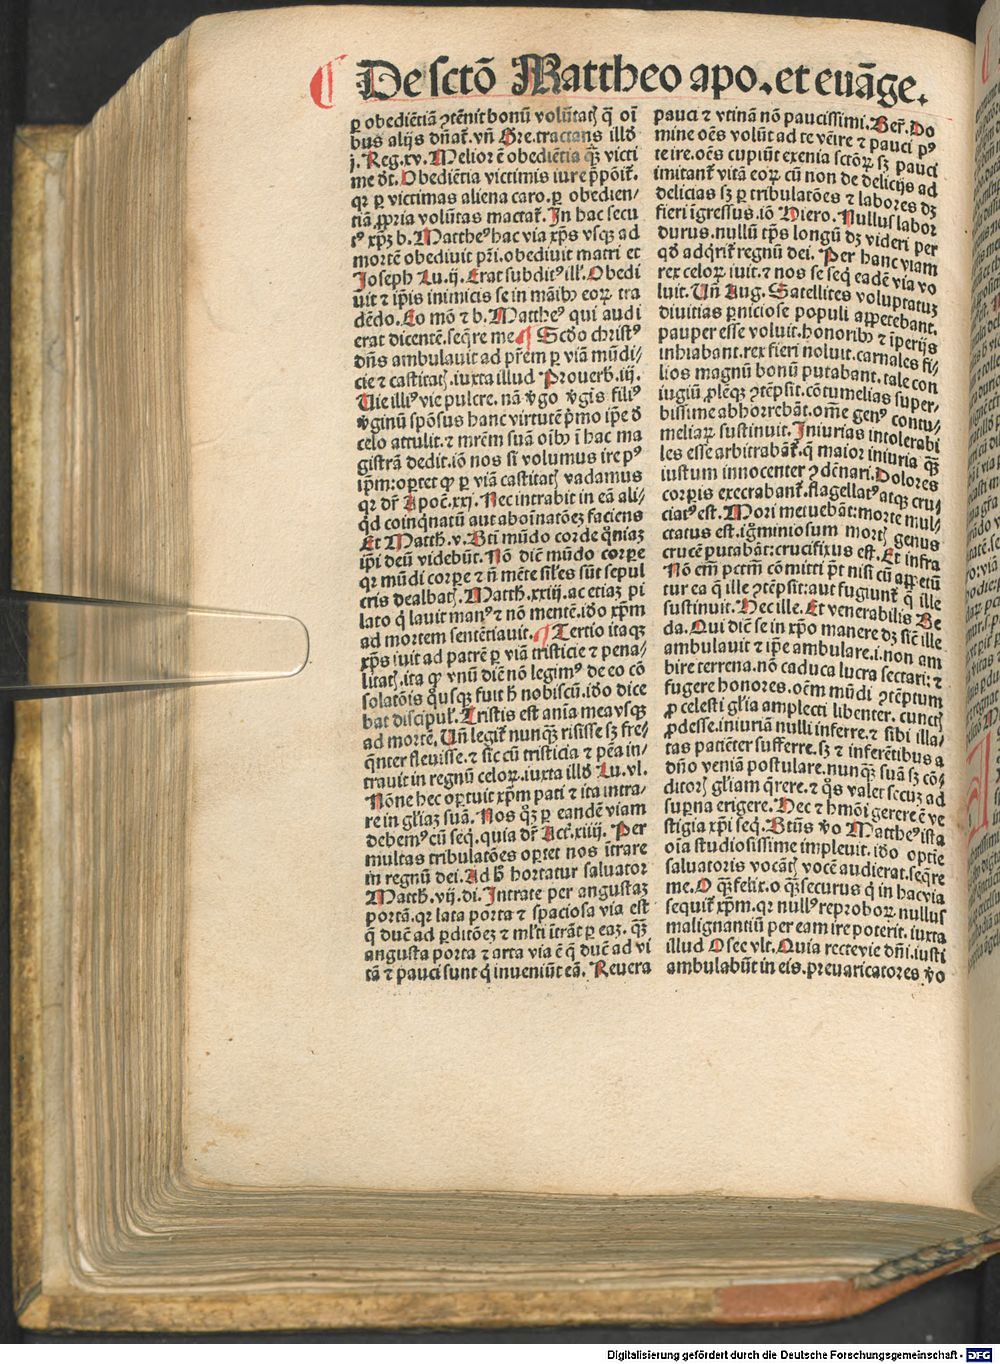 De sctō Mattheo apo. et euāge.
ꝑ obediētiā ꝯtēnit bonū volūtatꝭ q̄ oī
bus alijs dn̄at᷑. vn̄ Gre. tractans illḋ
j. Reg. xv. Melior ē obediētia qꝫ̄ victi
me dt̄. Obediētia victimis iure p̄pōit᷑.
qꝛ ꝑ victimas aliena caro. ꝑ obedien-
tiā ꝓpria volūtas mactat᷑. In hac secu
tꝰ xp̄ꝫ b. Mattheꝰ hac via xp̄s vsqꝫ ad
mortē obediuit pr̄i. obediuit matri et
Joseph Lu. ij. Erat subditꝰ ill᷑. Obedi
uit ⁊ ip̄is inimicis se in māibꝰ eoꝝ tra
dēdo. Eo mō ⁊ b. Mattheꝰ qui audi
erat dicentē. seq̄re me ¶ Scd̄o christꝰ
dn̄s ambulauit ad pr̄em ꝑ viā mūdi-
cie ⁊ castitatꝭ. iuxta illud Prouerb̄. iij.
Uie illiꝰ vie pulcre. nā v̄go v̄gis filiꝰ
v̄ginū spōsus hanc virtutē p̄mo ip̄e ḋ
celo attulit. ⁊ mr̄em suā oibꝰ ī hac ma
gistrā dedit. iō nos si volumus ire pꝰ
ip̄m: oꝑtet ꝙ ꝑ viā castitatꝭ vadamus
qꝛ dr̄ Apoc̄. xxj. Nec intrabit in eā ali-
q̇d coinq̇natū aut aboīnatōeꝫ faciens
Et Matth̄. v. Bt̄i mūdo corde qm̄ꝫ
ip̄i deū videbūt. Nō diē mūdo corꝑe
qꝛ mūdi corꝑe ⁊ n̄ mēte sil̄es sūt sepul
cris dealbatꝭ. Matth̄. xxiij. ac etiaꝫ pi
lato q̇ lauit manꝰ ⁊ nō mentē. iḋo xp̄m
ad mortem sentētiauit. ¶ Tertio itaqꝫ
xp̄s iuit ad patrē ꝑ viā tristicie ⁊ pena-
litatꝭ. ita ꝙ vnū diē nō legimꝰ de eo cō
solatōis q̇usqꝫ fuit h̄ nobiscū. iḋo dice
bat discipul᷑. Tristis est anīa mea vsqꝫ
ad mortē. Un̄ legit᷑ nunqꝫ̄ risisse sꝫ fre-
q̄nter fleuisse. ⁊ sic cū tristicia ⁊ pēa in-
trauit in regnū celoꝝ. iuxta illḋ Lu. vl.
Nōne hec oꝑtuit xp̄m pati ⁊ ita intra-
re in gl̄iaꝫ suā. Nos qꝫ̊ ꝑ eandē viam
debemꝰ cū seq̇. quia dr̄ Act᷑. xiiij. Per
multas tribulatōes oꝑtet nos ītrare
in regnū dei. Ad h̄ hortatur saluator
Matth̄. vij. di. Intrate per angustaꝫ
portā. qꝛ lata porta ⁊ spaciosa via est
q̄ duc̄ ad ꝑditōeꝫ ⁊ ml̄ti ītrāt ꝑ eaꝫ. qꝫ̄
angusta porta ⁊ arta via ē q̄ duc̄ ad vi
tā ⁊ pauci sunt q̇ inueniūt eā. Reuera
pauci ⁊ vtinā nō paucissimi. Ber̄. Do
mine oēs volūt ad te vēire ⁊ pauci pꝰ
te ire. oēs cupiūt exenia sctōꝝ sꝫ pauci
imitant᷑ vitā eoꝝ cū non de delicijs ad
delicias sꝫ ꝑ tribulatōes ⁊ labores dꝫ
fieri īgressus. iō Hiero. Nullus labor
durus. nullū tp̄s longū dꝫ videri per
qḋ adq̇rit᷑ regnū dei. Per hanc viam
rex celoꝝ iuit. ⁊ nos se seq̇ eadē via vo
luit. Un̄ Aug. Satellites voluptatuꝫ
diuitias ꝑniciose populi appetebant.
pauper esse voluit. honoribꝰ ⁊ īperijs
inhiabant. rex fieri noluit. carnales fi-
lios magnū bonū putabant. tale con
iugiū ꝓleqꝫ ꝯtēpsit. cōtumelias super-
bissime abhorrebāt. om̄e genꝰ contu-
meliaꝝ sustinuit. Iniurias intolerabi
les esse arbitrabāt᷑. q̄ maior iniuria qꝫ̄
iustum innocenter ꝯdēnari. Dolores
corꝑis execrabant᷑. flagellatꝰ atqꝫ cru-
ciatꝰ est. Mori metuebāt: morte mul-
ctatus est. iḡminiosum mortꝭ genus
crucē putabāt: crucifixus est. Et infra
Nō em̄ pctm̄ cōmitti pt̄ nisi cū appetiū
tur ea q̄ ille ꝯtēpsit: aut fugiunt᷑ q̄ ille
sustinuit. Hec ille. Et venerabilis Be
da. Qui diē se in xp̄o manere dꝫ sic̄ ille
ambulauit ⁊ ip̄e ambulare. i. non am
bire terrena. nō caduca lucra sectari: ⁊
fugere honores. oēm mūdi ꝯtēptum
ꝓ celesti gl̄ia amplecti libenter. cunctꝭ
ꝓdesse. iniuriā nulli inferre. ⁊ sibi illa-
tas patiēter sufferre. sꝫ ⁊ inferētibus a
dn̄o veniā postulare. nunqꝫ̄ suā sꝫ cō-
ditorꝭ gl̄iam q̄rere. ⁊ q̊s valet secuꝫ ad
suꝑna erigere. Hec ⁊ hm̄oi gerere ē ve
stigia xp̄i seq̇. Bt̄us v̊o Mattheꝰ ista
oīa studiosissime impleuit. iḋo optie
saluatoris vocātꝭ vocē audierat. seq̄re
me. O qꝫ̄ felix. o qꝫ̄ securus q̇ in hac via
sequit᷑ xp̄m. qꝛ nullꝰ reproboꝝ nullus
malignantiū per eam ire poterit. iuxta
illud Osee vlt. Quia recte vie dn̄i. iusti
ambulabūt in eis. preuaricatores v̊o
Digitalisierung gefördert durch die Deutsche Forschungsgemeinschaft - DFG